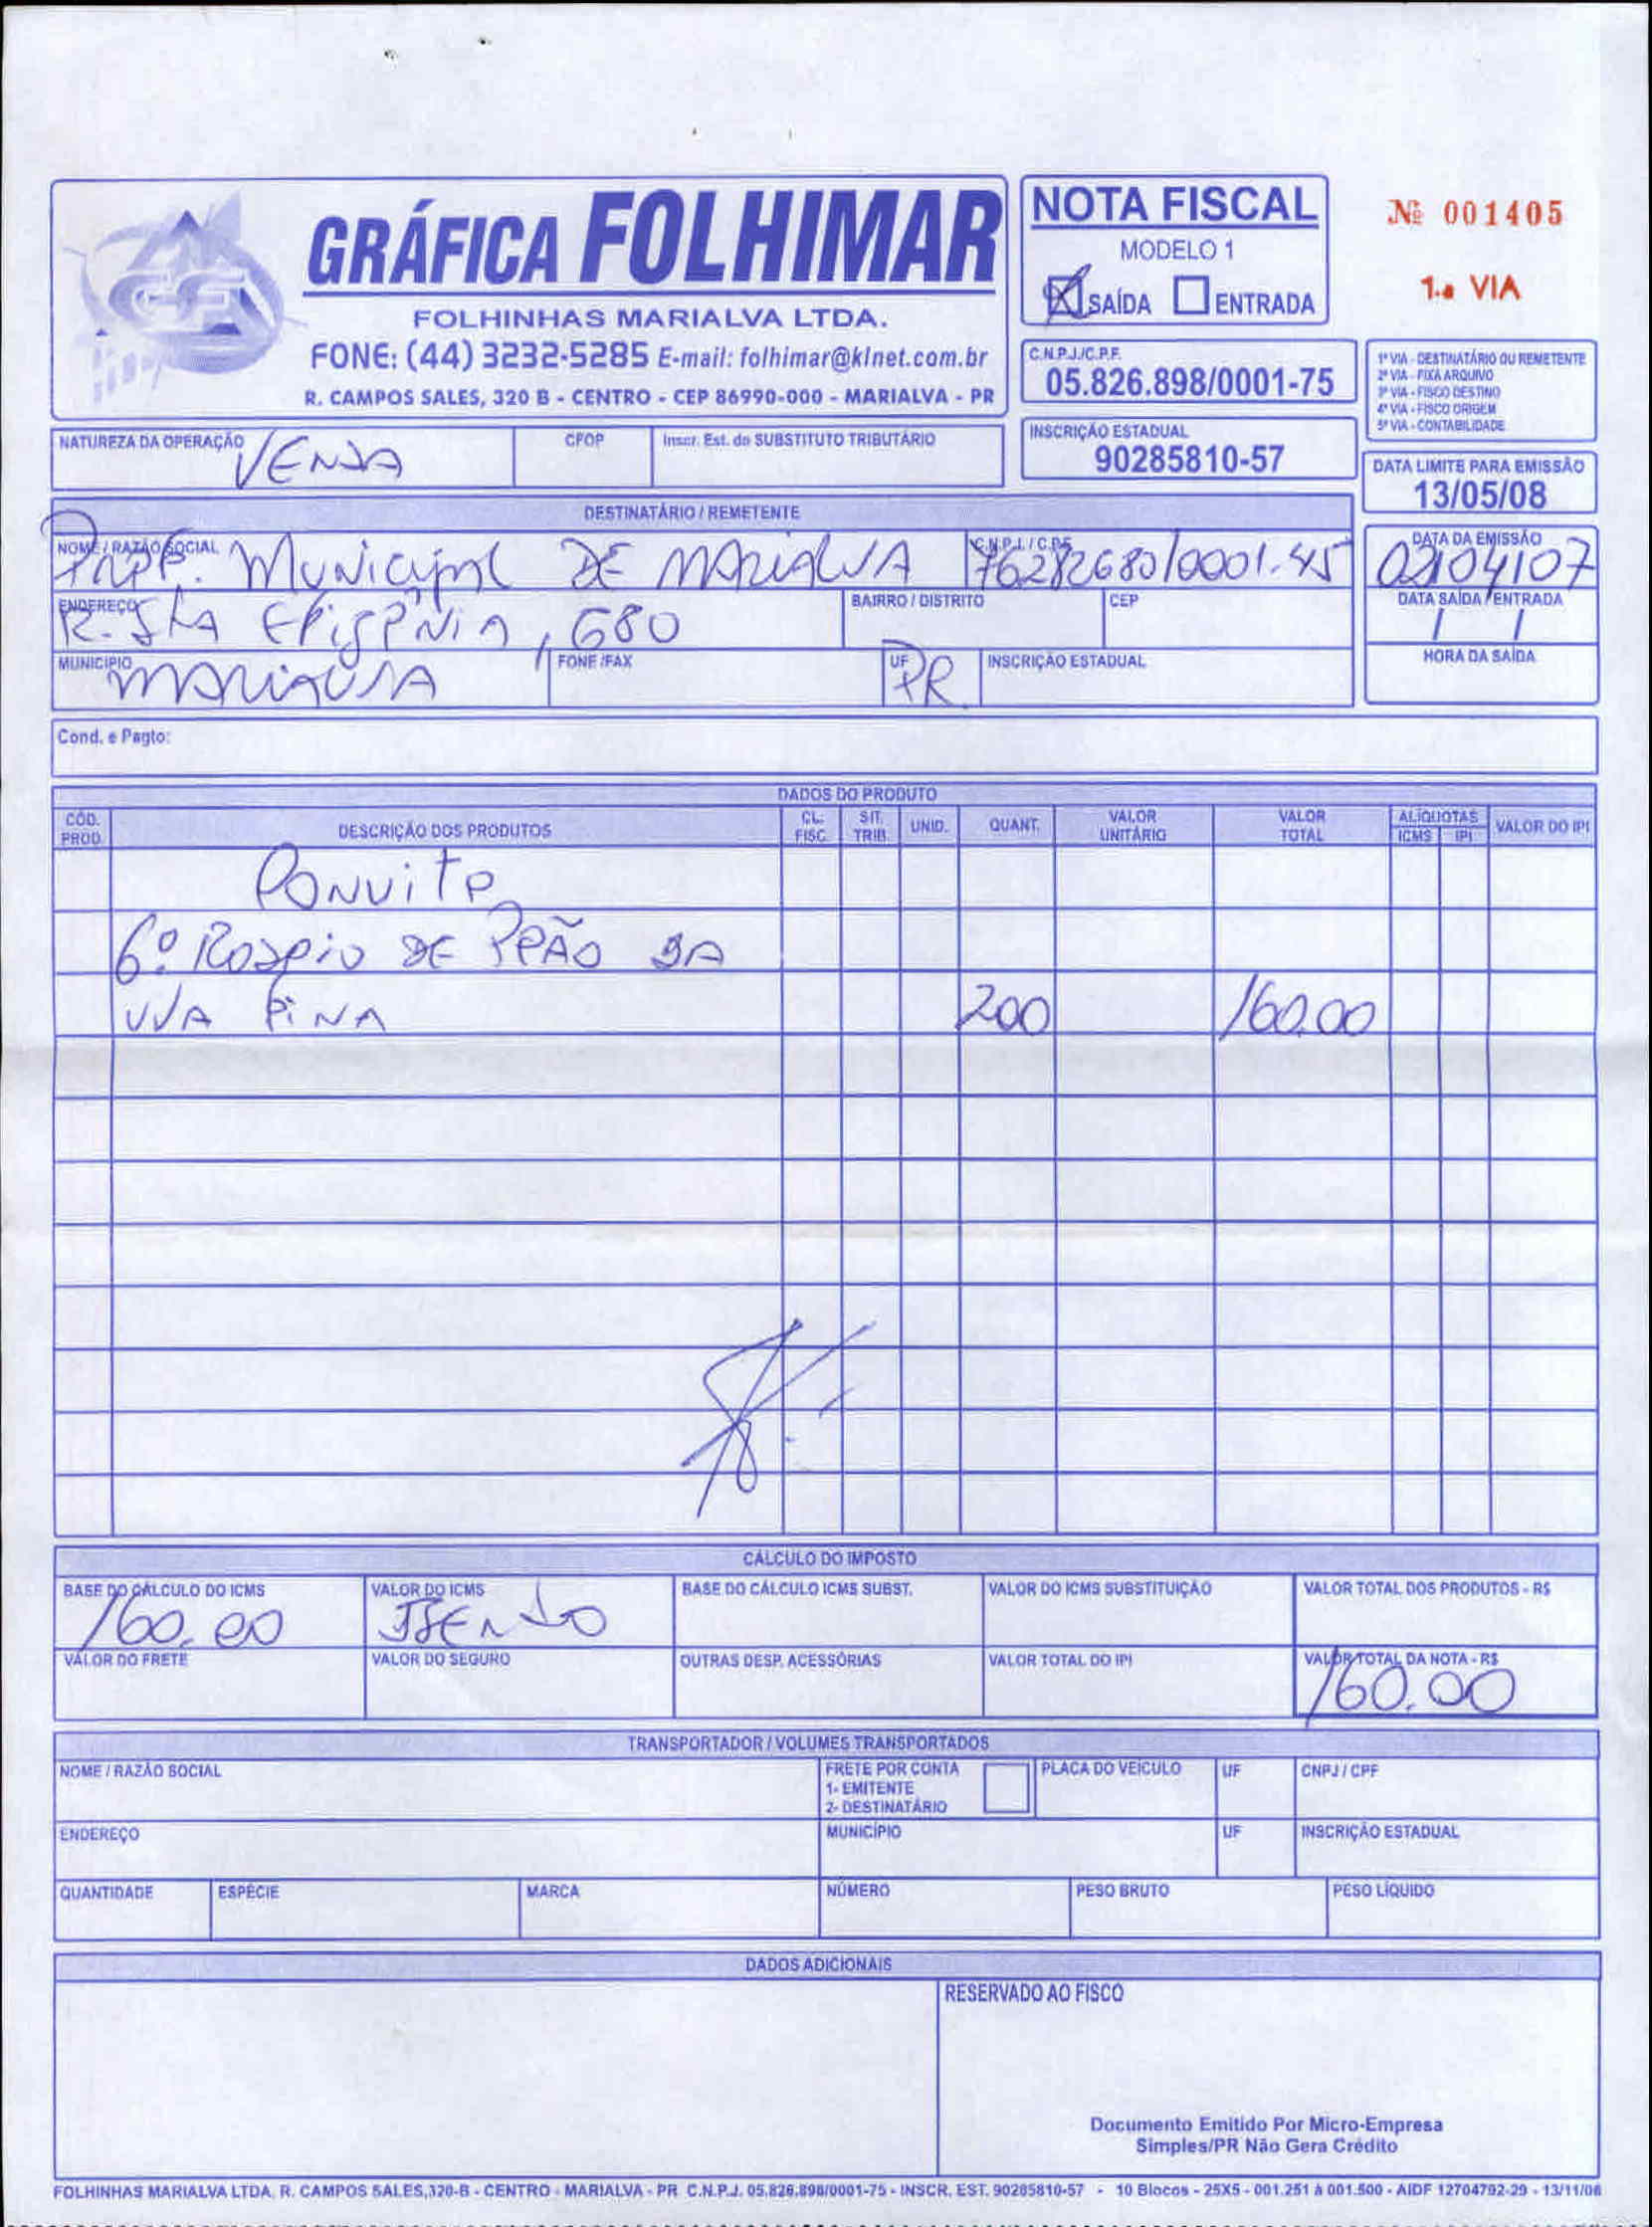 GRÁFICA FOLHIMAR
FOLHINHAS MARIALVA LTDA.
FONE: (44) 3232-5285 E-mail: folhimar@klnet.com.br
R. CAMPOS SALES, 320 B - CENTRO - CEP 86990-000 - MARIALVA - PR
NOTA FISCAL
MODELO 1
X SAÍDA ENTRADA
Nº 001405
1.ª VIA
C.N.P.J./C.P.F.
05.826.898/0001-75
1ª VIA - DESTINATÁRIO OU REMETENTE
2ª VIA - FIXA ARQUIVO
3ª VIA - FISCO DESTINO
4ª VIA - FISCO ORIGEM
5ª VIA - CONTABILIDADE
NATUREZA DA OPERAÇÃO VENDA
CFOP
Inscr. Est. do SUBSTITUTO TRIBUTÁRIO
INSCRIÇÃO ESTADUAL
90285810-57
DATA LIMITE PARA EMISSÃO
13/05/08
DESTINATÁRIO / REMETENTE
NOME / RAZÃO SOCIAL C.N.P.J. / C.P.F. DATA DA EMISSÃO
PREF. MUNICIPAL DE MARIALVA 76282680/0001-45 02/04/07
ENDEREÇO BAIRRO / DISTRITO CEP DATA SAÍDA / ENTRADA
R. STA EFIGÊNIA, 680 / /
MUNICÍPIO FONE / FAX UF INSCRIÇÃO ESTADUAL HORA DA SAÍDA
MARIALVA PR
Cond. e Pagto:
DADOS DO PRODUTO
CÓD. PROD. DESCRIÇÃO DOS PRODUTOS CL. FISC. SIT. TRIB. UNID. QUANT. VALOR UNITÁRIO VALOR TOTAL ALÍQUOTAS ICMS IPI VALOR DO IPI
CONVITE
6º RODEIO DE PEÃO DA
UVA FINA 200 160,00
CÁLCULO DO IMPOSTO
BASE DO CÁLCULO DO ICMS VALOR DO ICMS BASE DO CÁLCULO ICMS SUBST. VALOR DO ICMS SUBSTITUIÇÃO VALOR TOTAL DOS PRODUTOS - R$
160,00 ISENTO
VALOR DO FRETE VALOR DO SEGURO OUTRAS DESP. ACESSÓRIAS VALOR TOTAL DO IPI VALOR TOTAL DA NOTA - R$
160.00
TRANSPORTADOR / VOLUMES TRANSPORTADOS
NOME / RAZÃO SOCIAL
FRETE POR CONTA
1- EMITENTE
2- DESTINATÁRIO
PLACA DO VEÍCULO UF CNPJ / CPF
ENDEREÇO MUNICÍPIO UF INSCRIÇÃO ESTADUAL
QUANTIDADE ESPÉCIE MARCA NÚMERO PESO BRUTO PESO LÍQUIDO
DADOS ADICIONAIS
RESERVADO AO FISCO
Documento Emitido Por Micro-Empresa
Simples/PR Não Gera Crédito
FOLHINHAS MARIALVA LTDA. R. CAMPOS SALES,320-B - CENTRO - MARIALVA - PR C.N.P.J. 05.826.898/0001-75 - INSCR. EST. 90285810-57 - 10 Blocos - 25X5 - 001.251 à 001.500 - AIDF 12704792-29 - 13/11/06